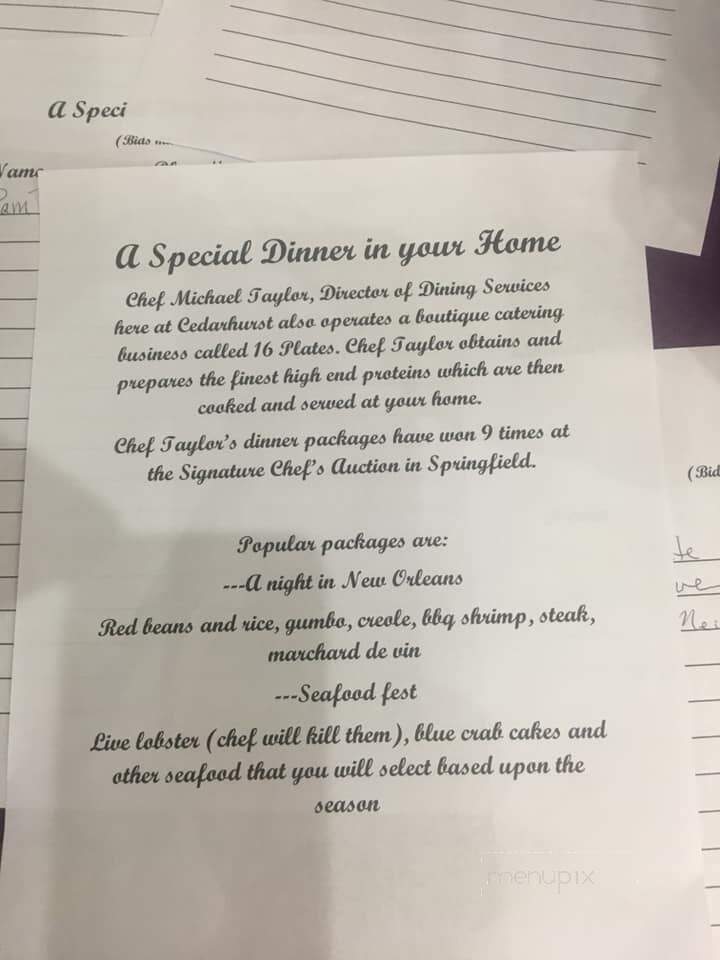 A Speci
(Bids
A Special Dinner in your Home
Chef Michael Taylor, Director of Dining Services
here at Cedarhurst also operates a boutique catering
business called 16 Plates. Chef Taylor obtains and
prepares the finest high end proteins which are then
cooked and served at your home.
Chef Taylor's dinner packages have won 9 times at
the Signature Chef's Auction in Springfield.
Popular packages are:
---A night in New Orleans
Red beans and rice, gumbo, creole, bbq shrimp, steak,
marchard de vin
---Seafood fest
Live lobster (chef will kill them), blue crab cakes and
other seafood that you will select based upon the
season
(Bid
te
ve
menupix